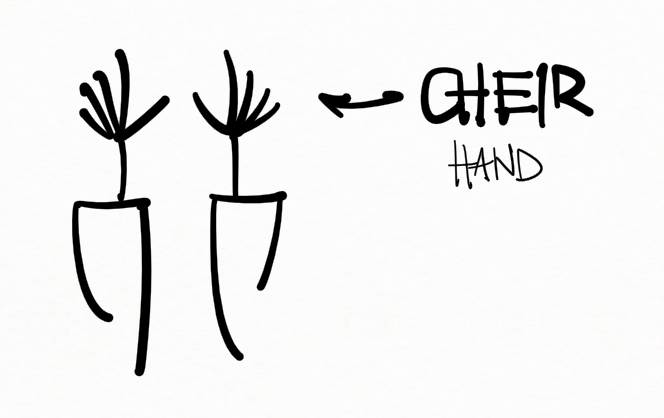 CHEIR
HAND